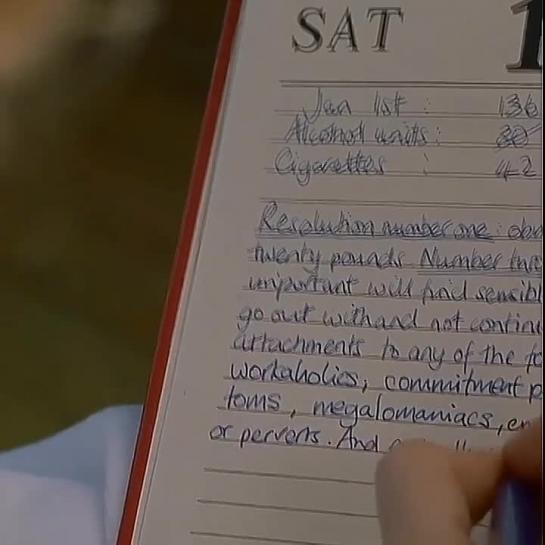 SAT 1
Jan 1st : 136
Alcohol units :
Cigarettes : 42
Resolution number one : obv
twenty pounds Number
important will find sensibl
go out with and not continu
attachments to any of the fo
workaholics, commitment p
toms, megalomaniacs, em
or perverts. And